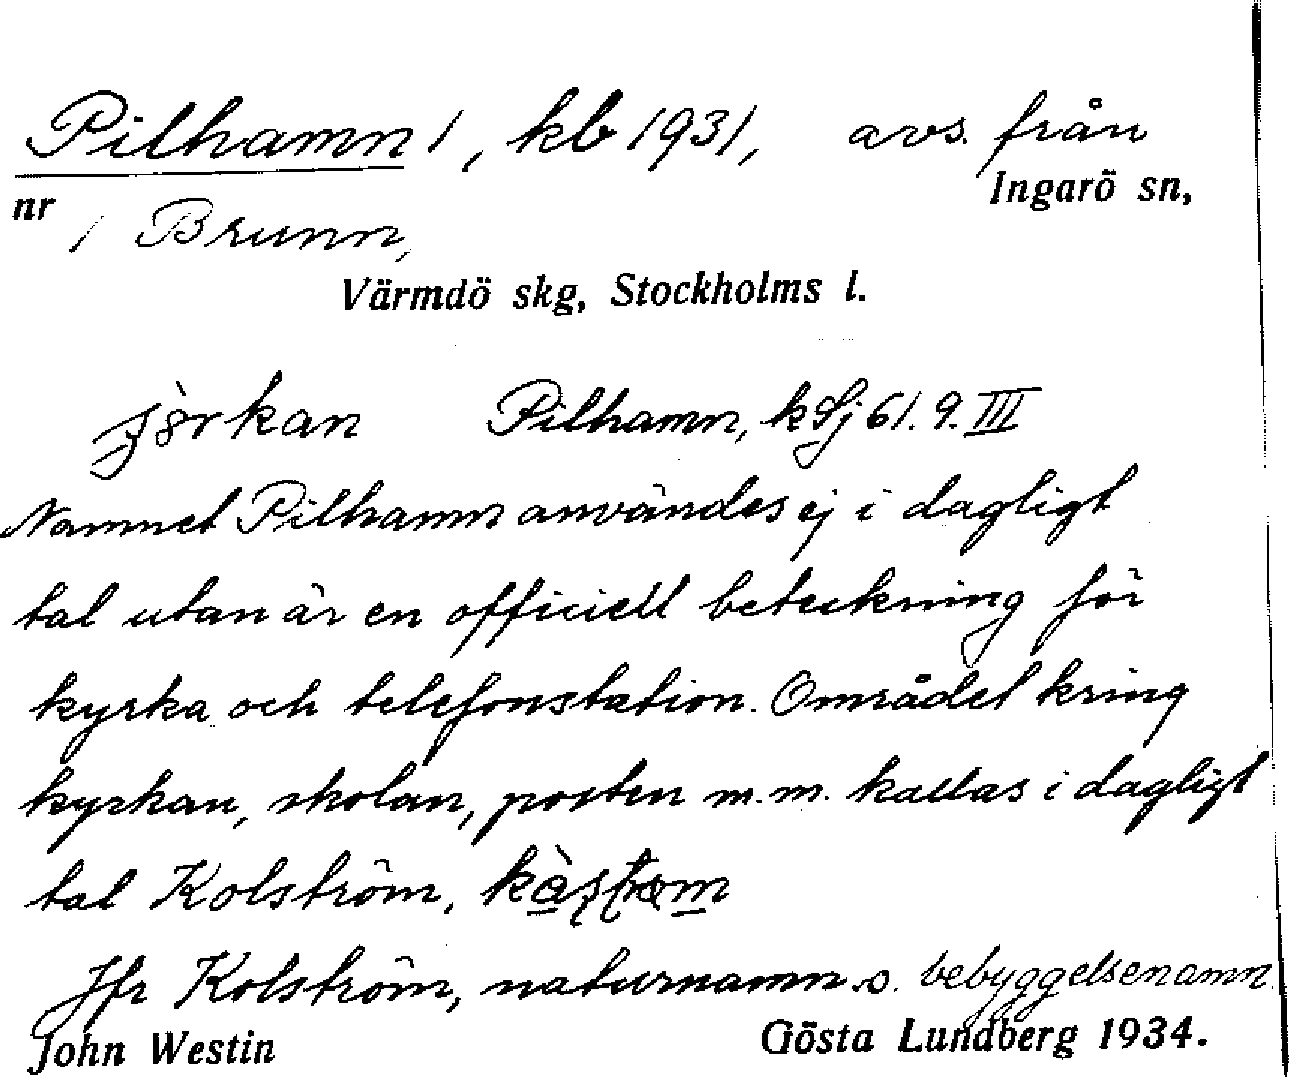 Pilhamn 1, kb 1931, avs. från
Ingarö sn,
nr 1 Brunn,
Värmdö skg, Stockholms l.
Pilhamn, k Sj 61. 9. III
Namnet Pilhamn användes ej i dagligt
tal utan är en officiell beteckning för
kyrka och telefonstation. Området kring
kyrkan, skolan, posten m.m. kallas i dagligt
tal Kolström,
Jfr Kolström, naturnamn o. bebyggelsenamn.
John Westin Gösta Lundberg 1934.